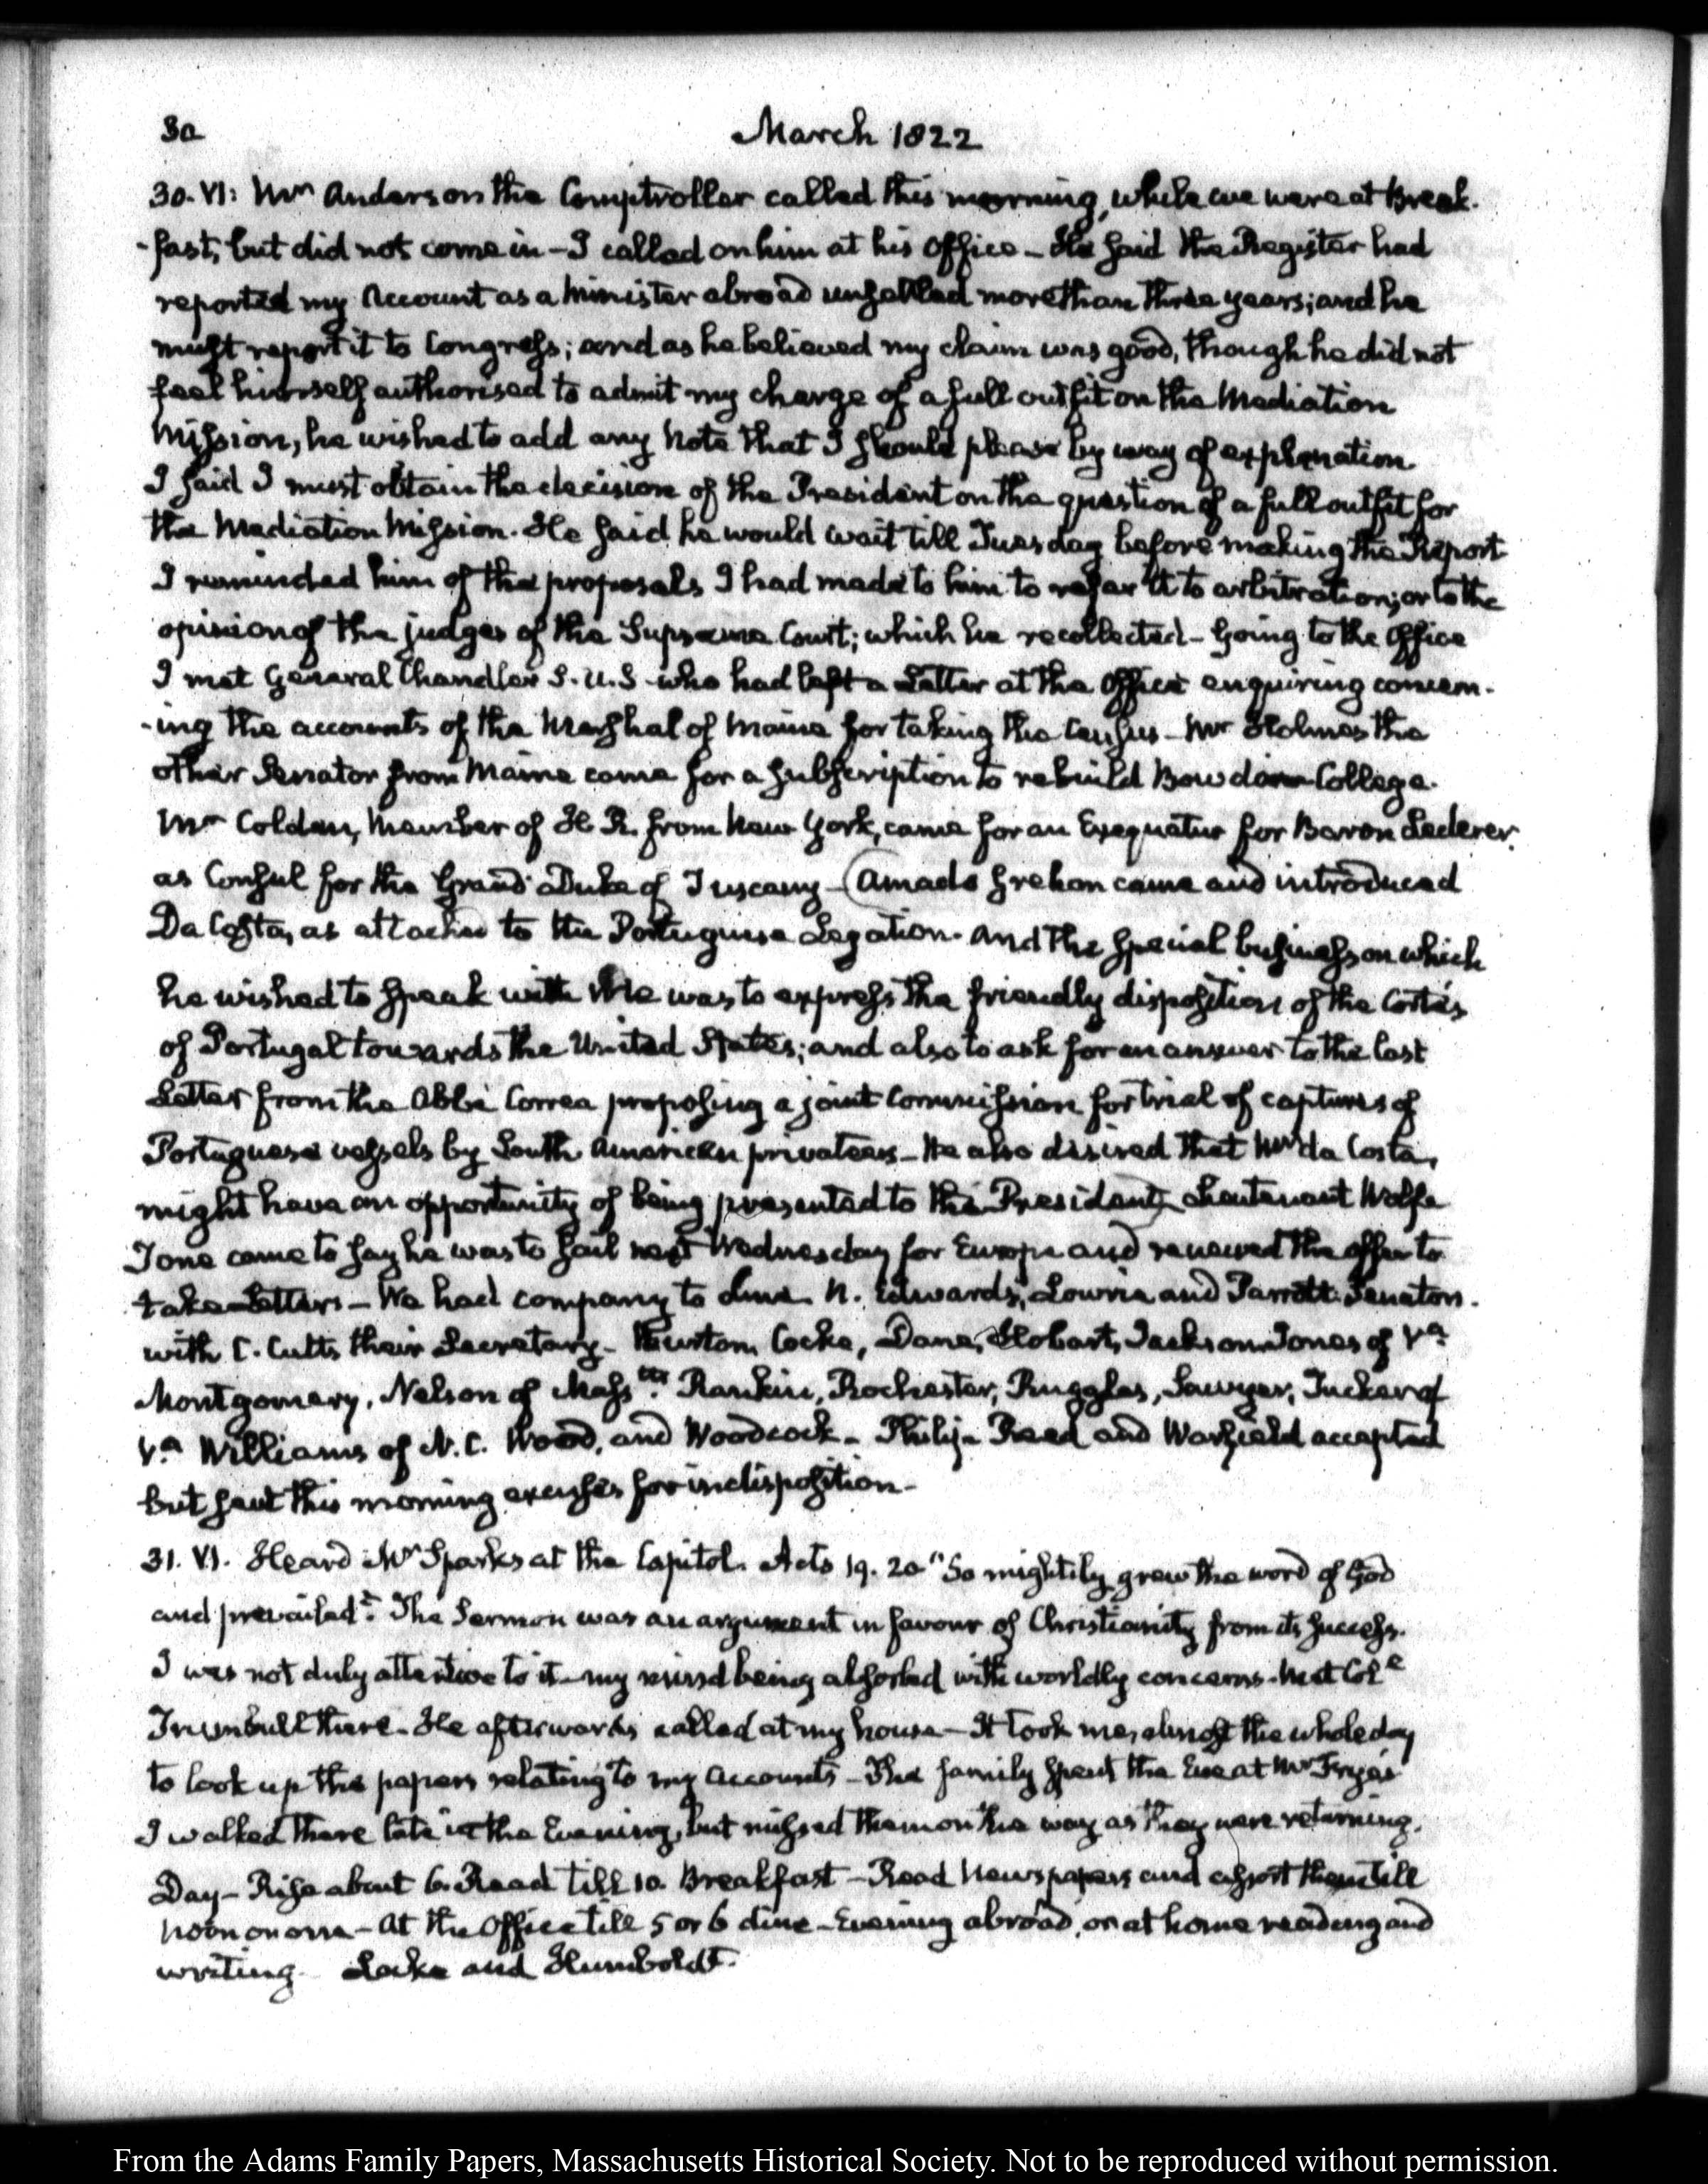 30
March 1822
30. VI: Mr Anderson the Comptroller called this morning, while we were at Break-
-fast, but did not come in — I called on him at his Office — He said the Register had
reported my Account as a Minister abroad unsettled more than three years; and he
must report it to Congress; and as he believed my claim was good, though he did not
feel himself authorised to admit my charge of a full outfit on the Mediation
Mission, he wished to add any Note that I should please by way of explanation.
I said I must obtain the decision of the President on the question of a full outfit for
the Mediation Mission. He said he would wait till Tuesday before making the Report
I reminded him of the proposals I had made to him to refer it to arbitration; or to the
opinion of the judges of the Supreme Court; which he recollected — Going to the Office
I met General Chandler S. U. S. who had left a Letter at the Office enquiring concern-
-ing the accounts of the Marshal of Maine for taking the Census — Mr Holmes the
other Senator from Maine came for a subscription to rebuild Bowdoin College.
Mr Colden, Member of H. R. from New York, came for an Exequatur for Baron Lederer
as Consul for the Grand Duke of Tuscany — (Amado Grehon came and introduced
Da Costa, as attached to the Portuguese Legation. And the special business on which
he wished to speak with me was to express the friendly disposition of the Cortes
of Portugal towards the United States; and also to ask for an answer to the last
Letter from the Abbé Correa proposing a joint Commission for trial of captures of
Portuguese vessels by South American privateers — He also desired that Mr da Costa,
might have an opportunity of being presented to the President) Lieutenant Wolfe
Tone came to say he was to sail next Wednesday for Europe and renewed the offer to
take Letters — We had company to dine. N. Edwards, Lowrie and Parrott. Senators.
with C. Cutts their Secretary — Newton, Cocke, Dane, Hobart, Jackson, Jones of Va
Montgomery, Nelson of Masstts. Rankin, Rochester, Ruggles, Sawyer, Tucker of
Va Williams of N. C. Wood, and Woodcock — Philip Reed and Warfield accepted
but sent this morning excuses for indisposition —
31. VI. Heard Mr Sparks at the Capitol. Acts 19. 20 "So mightily grew the word of God
and prevailed". The Sermon was an argument in favour of Christianity from its success.
I was not duly attentive to it — my mind being absorbed with worldly concerns. Met Coll
Trumbull there — He afterwards called at my house — It took me, almost the whole day
to look up the papers relating to my Accounts — The family spent the Eve at Mr Frye's
I walked there late in the Evening, but missed them on the way as they were returning.
Day — Rise about 6. Read till 10. Breakfast — Read Newspapers and assort them till
noon or one — At the Office till 5 or 6 dine — Evening abroad, or at home reading and
writing. Locke and Humboldt.
From the Adams Family Papers, Massachusetts Historical Society. Not to be reproduced without permission.